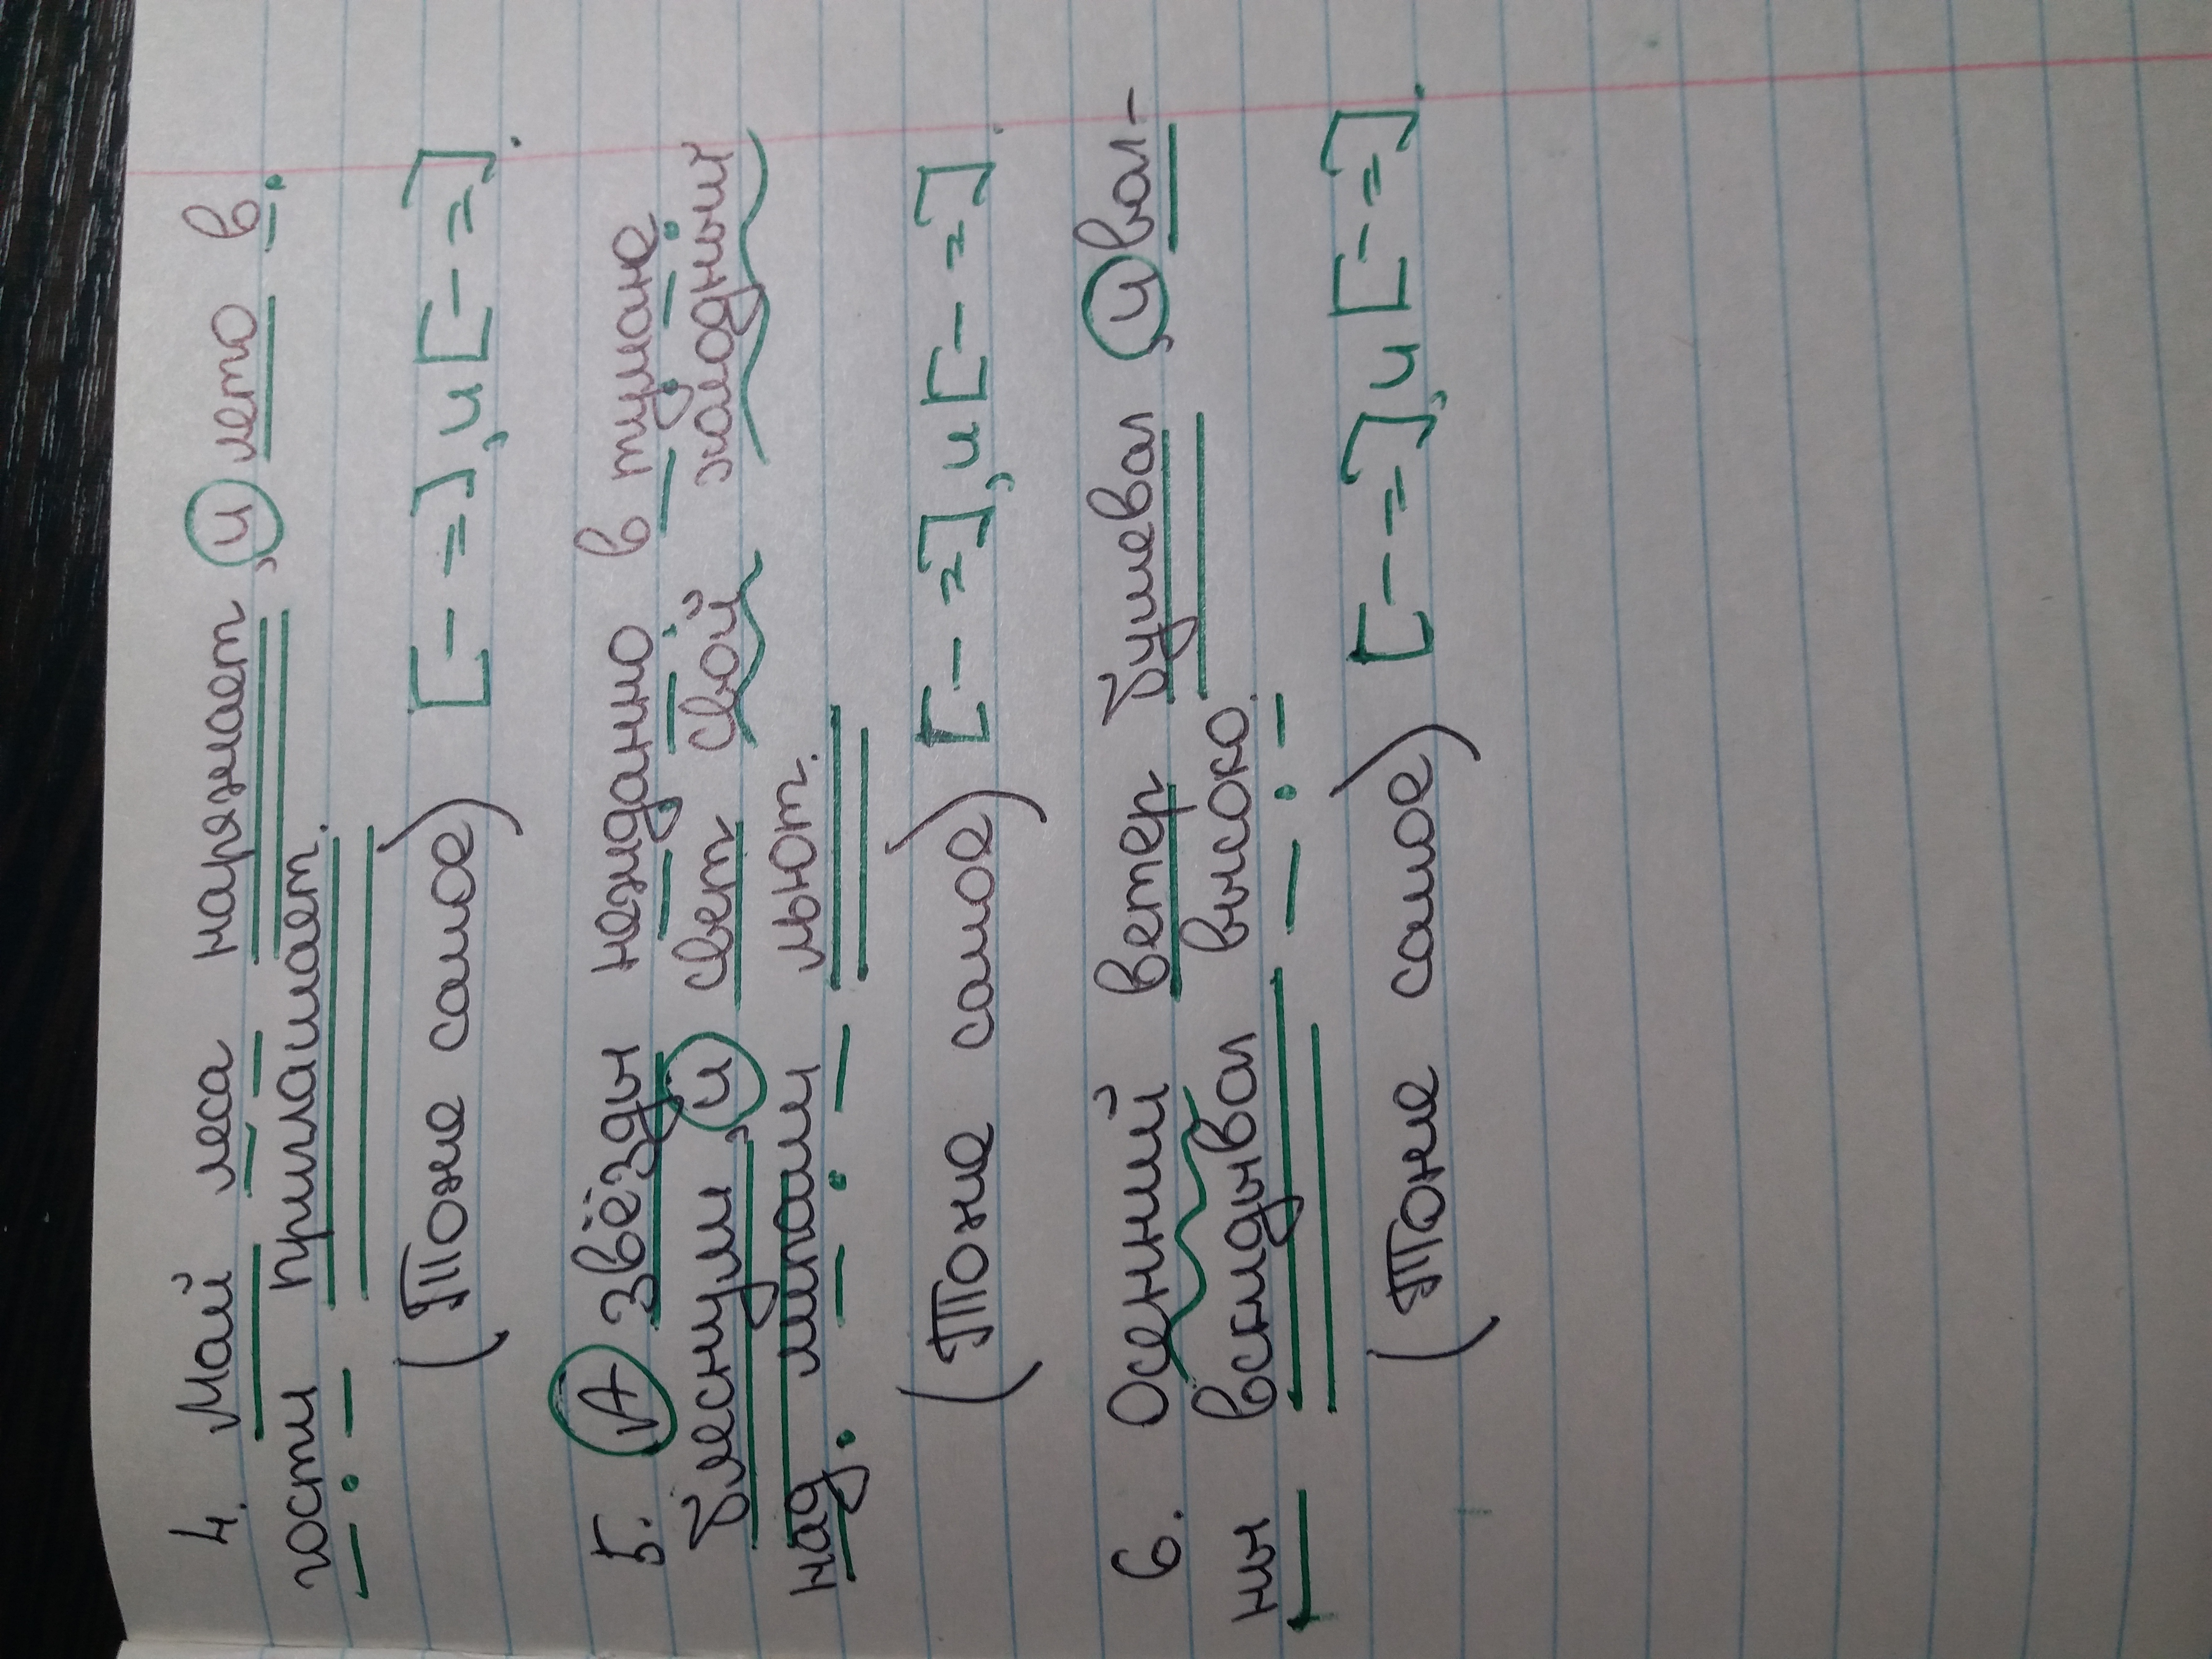 4. Май леса наряжает, и лето в
гости приглашает.
(Тоже самое) [– =], и [– =].
5. А звёзды нежданно в тумане
блеснули, и свет свой холодный
над липами льют.
(Тоже самое) [– =], и [– =].
6. Осенний ветер бушевал, и вол-
ны вскидывал высоко.
(Тоже самое) [– =], и [– =].